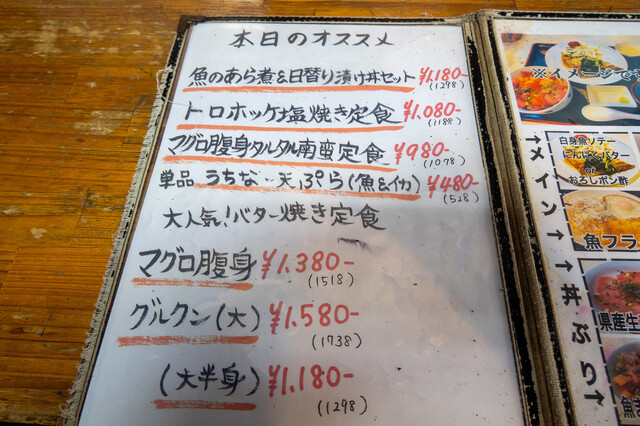 本日のオススメ
魚のあら煮&日替り漬け丼セット ¥1.180-
(1298)
トロホッケ塩焼き定食 ¥1.080-
(1188)
マグロ腹身タルタル南蛮定食 ¥980-
(1078)
単品 うちなー天ぷら(魚&イカ) ¥480-
(528)
大人気!バター焼き定食
マグロ腹身 ¥1.380-
(1518)
グルクン(大) ¥1.580-
(1738)
(大半身) ¥1.180-
(1298)
※イメージで
→メイン→→丼ぶり→
白身魚ソテー
にんにくバター
or
おろしポン酢
魚フラ
県産生
魚ま